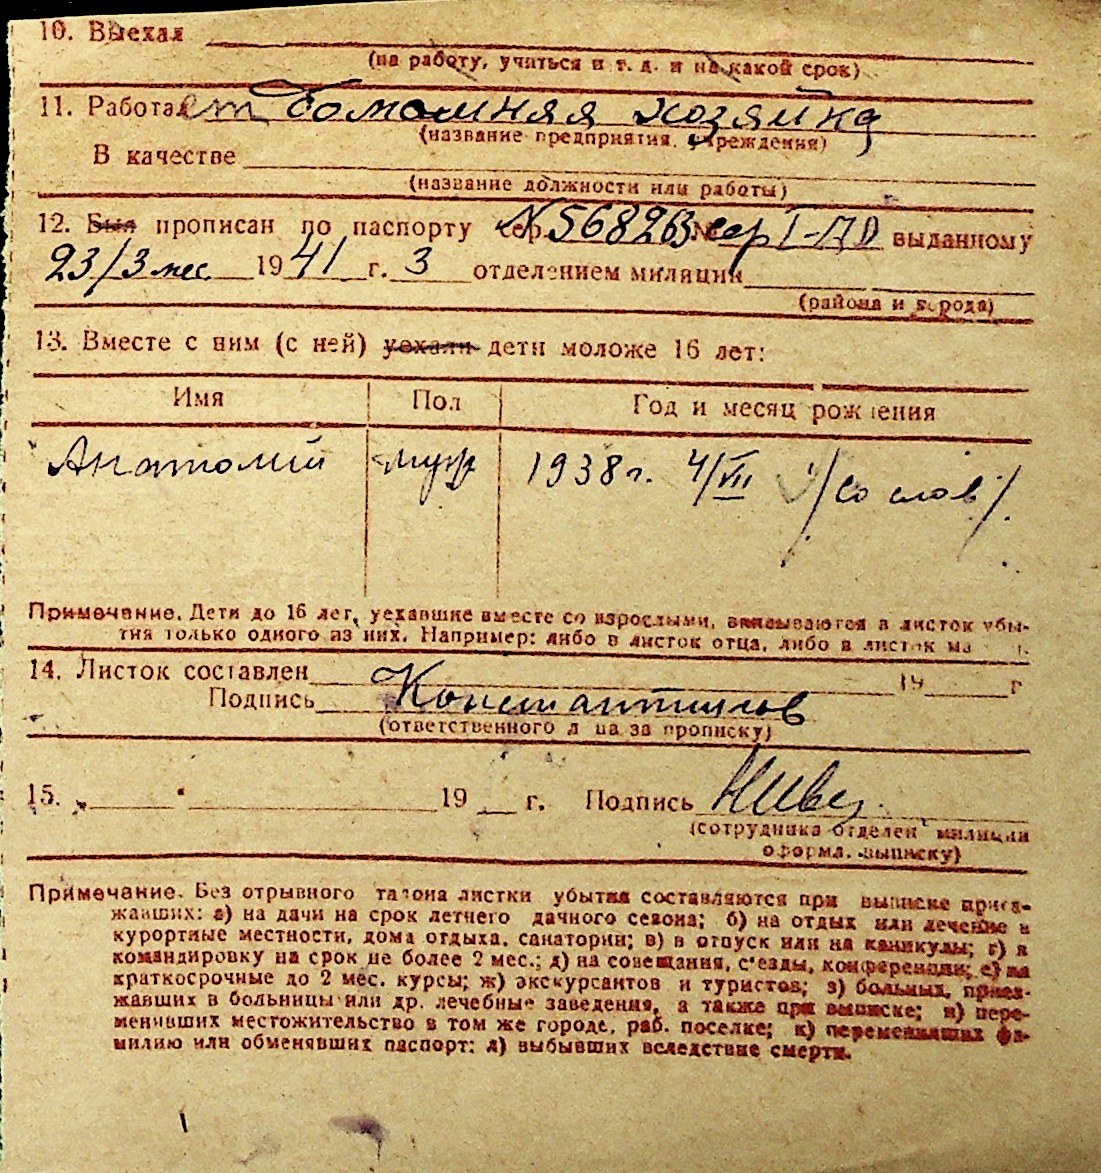 10. Выехал
(на работу, учиться и т. д. и на какой срок)
11. Работает домашняя хозяйка
(название предприятия, учреждения)
В качестве
(название должности или работы)
12. Был прописан по паспорту сер. N 568263 сер I-ДД выданному
23/3 мес 1941 г. 3 отделением милиции
(района и города)
13. Вместе с ним (с ней) уехали дети моложе 16 лет:
Имя Пол Год и месяц рождения
Анатолий муж 1938 г. 4/VII /со слов/.
Примечание. Дети до 16 лет, уехавшие вместе со взрослыми, вписываются в листок убы-
тия только одного из них. Например: либо в листок отца, либо в листок ма
14. Листок составлен 19 г
Подпись Константинов
(ответственного л ца за прописку)
15. 19 г. Подпись
(сотрудника отделен милиции
оформл. выписку)
Примечание. Без отрывного талона листки убытия составляются при выписке приез-
жавших: а) на дачи на срок летнего дачного сезона; б) на отдых или лечение в
курортные местности, дома отдыха, санатории; в) в отпуск или на каникулы; г) в
командировку на срок не более 2 мес.; д) на совещания, с'езды, конференции; е) на
краткосрочные до 2 мес. курсы; ж) экскурсантов и туристов; з) больных, приез-
жавших в больницы или др. лечебные заведения, а также при выписке; и) пере-
менивших местожительство в том же городе, раб. поселке; к) переменивших фа-
милию или обменявших паспорт; л) выбывших вследствие смерти.